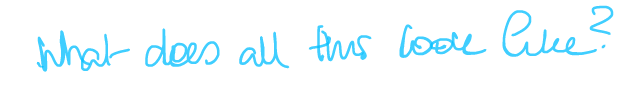 What does all this look like?